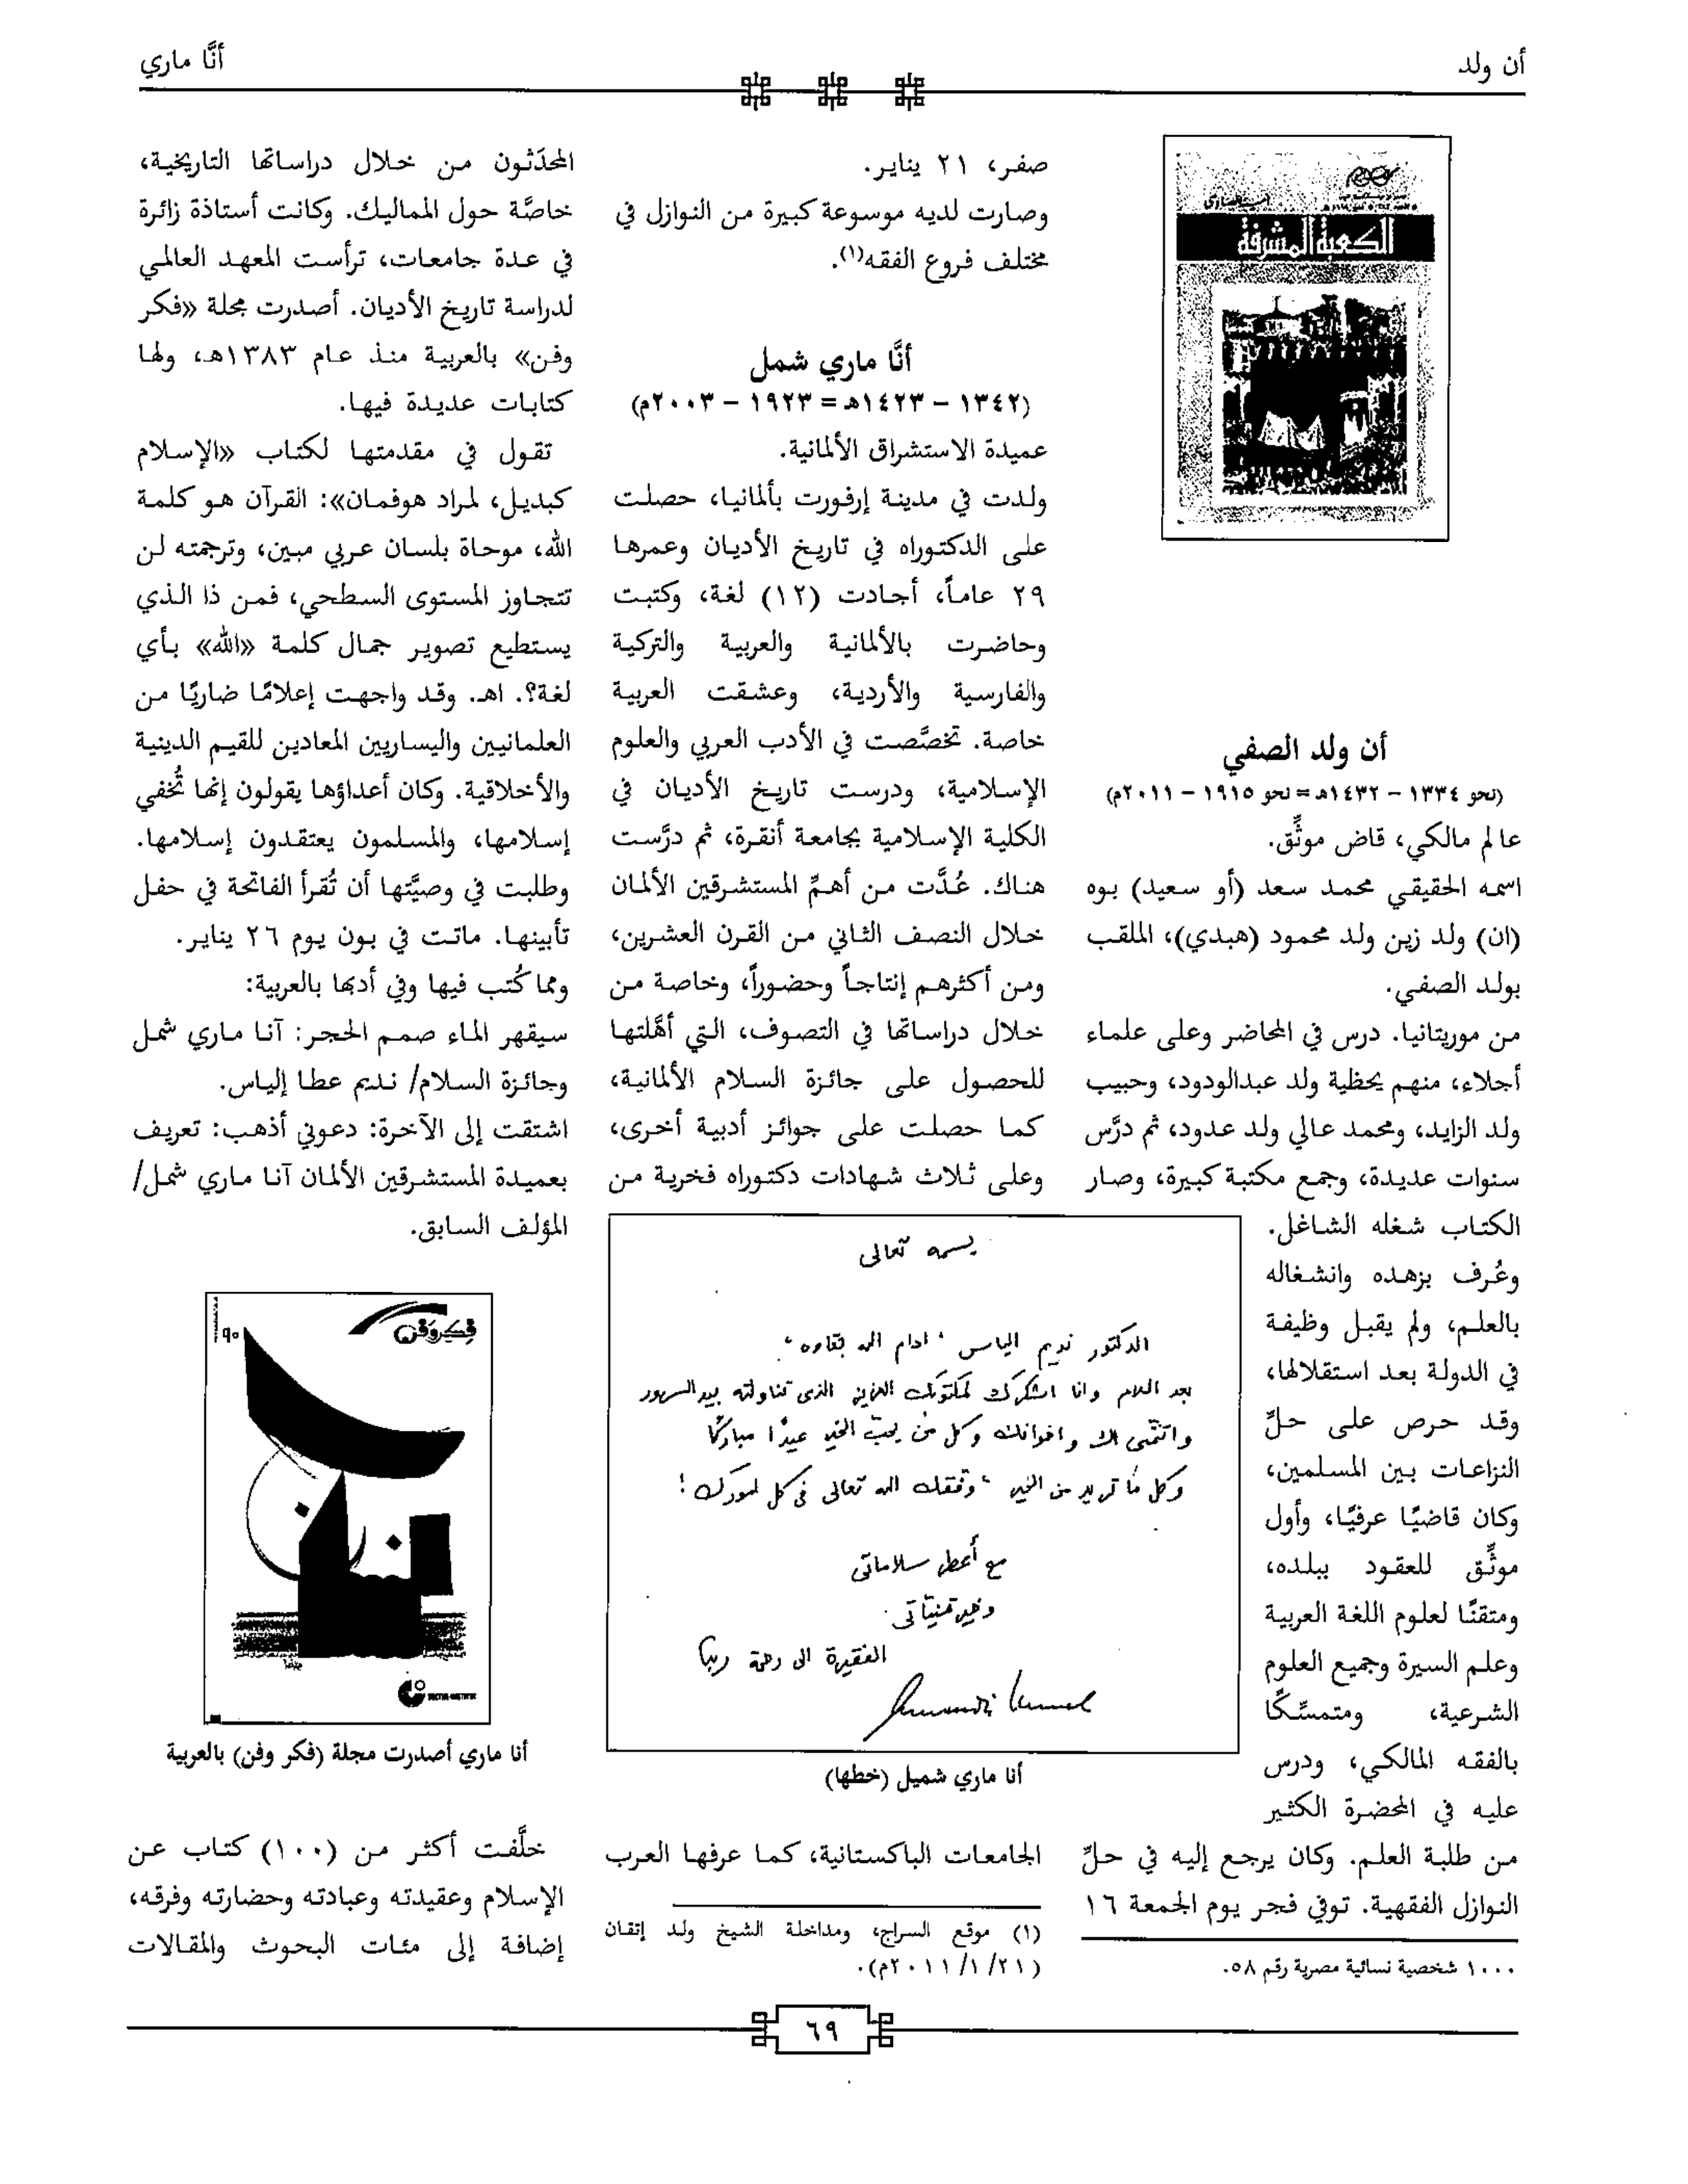 أن ولد
أنَّا ماري
الكعبة المشرفة
أن ولد الصفي
(نحو ١٣٣٤ - ١٤٣٢هـ = نحو ١٩١٥ - ٢٠١١م)
عالم مالكي، قاض موثِّق.
اسمه الحقيقي محمد سعد (أو سعيد) بوه
(ان) ولد زين ولد محمود (هبدي)، الملقب
بولد الصفي.
من موريتانيا. درس في المحاضر وعلى علماء
أجلاء، منهم يحظية ولد عبدالودود، وحبيب
ولد الزايد، ومحمد عالي ولد عدود، ثم درَّس
سنوات عديدة، وجمع مكتبة كبيرة، وصار
الكتاب شغله الشاغل.
وعُرف بزهده وانشغاله
بالعلم، ولم يقبل وظيفة
في الدولة بعد استقلالها،
وقد حرص على حلِّ
النزاعات بين المسلمين،
وكان قاضيًا عرفيًا، وأول
موثِّق للعقود ببلده،
ومتقنًا لعلوم اللغة العربية
وعلم السيرة وجميع العلوم
الشرعية، ومتمسِّكًا
بالفقه المالكي، ودرس
عليه في المحضرة الكثير
من طلبة العلم. وكان يرجع إليه في حلِّ
النوازل الفقهية. توفي فجر يوم الجمعة ١٦
١٠٠٠ شخصية نسائية مصرية رقم ٥٨.
صفر، ٢١ يناير.
وصارت لديه موسوعة كبيرة من النوازل في
مختلف فروع الفقه(١).
أنَّا ماري شمل
(١٣٤٢ - ١٤٢٣هـ = ١٩٢٣ - ٢٠٠٣م)
عميدة الاستشراق الألمانية.
ولدت في مدينة إرفورت بألمانيا، حصلت
على الدكتوراه في تاريخ الأديان وعمرها
٢٩ عاماً، أجادت (١٢) لغة، وكتبت
وحاضرت بالألمانية والعربية والتركية
والفارسية والأردية، وعشقت العربية
خاصة. تخصَّصت في الأدب العربي والعلوم
الإسلامية، ودرست تاريخ الأديان في
الكلية الإسلامية بجامعة أنقرة، ثم درَّست
هناك. عُدَّت من أهمِّ المستشرقين الألمان
خلال النصف الثاني من القرن العشرين،
ومن أكثرهم إنتاجاً وحضوراً، وخاصة من
خلال دراساتها في التصوف، التي أهَّلتها
للحصول على جائزة السلام الألمانية،
كما حصلت على جوائز أدبية أخرى،
وعلى ثلاث شهادات دكتوراه فخرية من
بسمه تعالى
الدكتور نديم الياس "ادام الله بقاءه"
بعد السلام وانا اشكرك لمكتوبك العزيز الذى تناولته بيد السرور
واتمنى لك و اخوانك وكل من يحب الخير عيدًا مباركًا
وكل ما تريد من الخير "وفقك الله تعالى فى كل امورك!
مع أعطر سلاماتى
وخير تمنياتى
الفقيرة الى رحمة ربها
أنا ماري شميل (خطها)
الجامعات الباكستانية، كما عرفها العرب
(١) موقع السراج، ومداخلة الشيخ ولد إتقان
(٢١/ ١/ ٢٠١١م).
المحدَثون من خلال دراساتها التاريخية،
خاصَّة حول المماليك. وكانت أستاذة زائرة
في عدة جامعات، ترأست المعهد العالمي
لدراسة تاريخ الأديان. أصدرت مجلة «فكر
وفن» بالعربية منذ عام ١٣٨٣هـ، ولها
كتابات عديدة فيها.
تقول في مقدمتها لكتاب «الإسلام
كبديل، لمراد هوفمان»: القرآن هو كلمة
الله، موحاة بلسان عربي مبين، وترجمته لن
تتجاوز المستوى السطحي، فمن ذا الذي
يستطيع تصوير جمال كلمة «الله» بأي
لغة؟. اهـ. وقد واجهت إعلامًا ضاريًا من
العلمانيين واليساريين المعادين للقيم الدينية
والأخلاقية. وكان أعداؤها يقولون إنها تُخفي
إسلامها، والمسلمون يعتقدون إسلامها.
وطلبت في وصيَّتها أن تُقرأ الفاتحة في حفل
تأبينها. ماتت في بون يوم ٢٦ يناير.
ومما كُتب فيها وفي أدبها بالعربية:
سيقهر الماء صمم الحجر: آنا ماري شمل
وجائزة السلام/ نديم عطا إلياس.
اشتقت إلى الآخرة: دعوني أذهب: تعريف
بعميدة المستشرقين الألمان آنا ماري شمل/
المؤلف السابق.
فكر وفن
أنا ماري أصدرت مجلة (فكر وفن) بالعربية
خلَّفت أكثر من (١٠٠) كتاب عن
الإسلام وعقيدته وعبادته وحضارته وفرقه،
إضافة إلى مئات البحوث والمقالات
٦٩